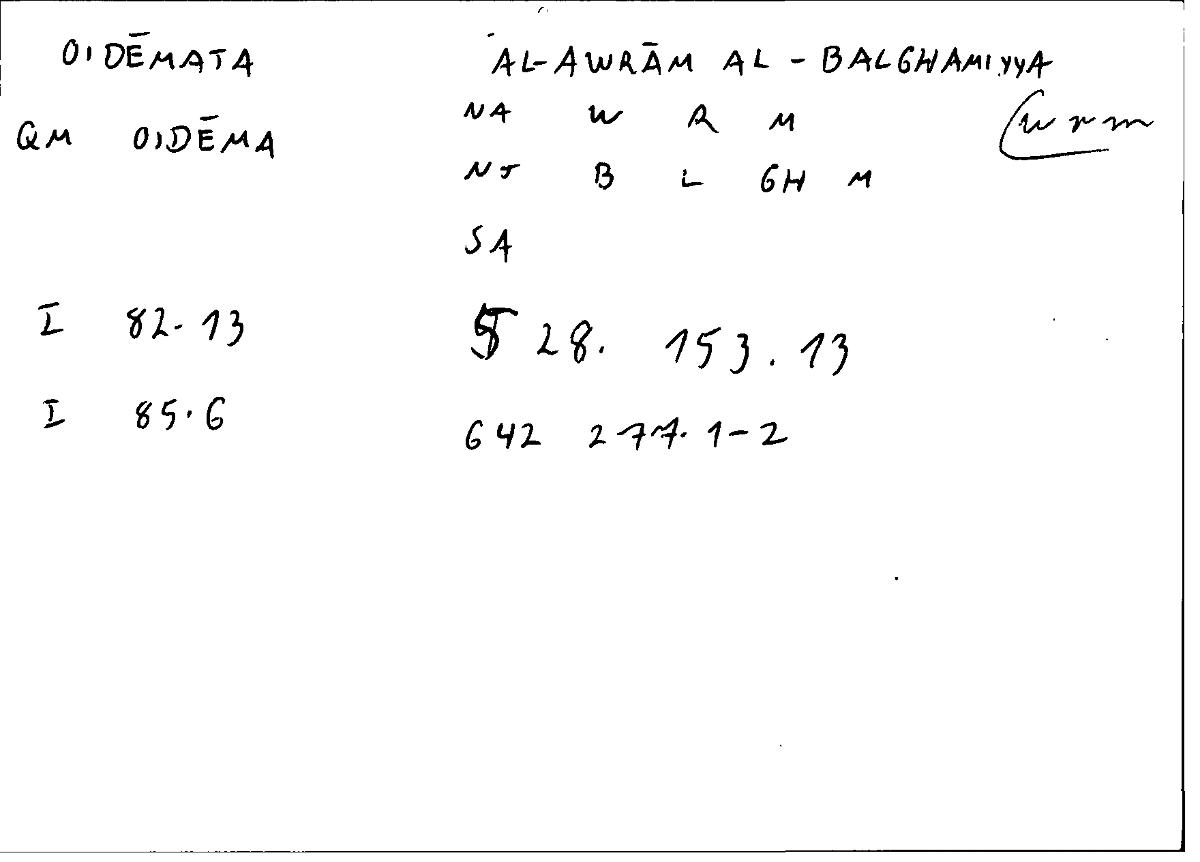 OIDĒMATA AL-AWRĀM AL-BALGHAMIYYA
QM OIDĒMA NA W R M wrm
NJ B L GH M
SA
I 82.13 28. 153.13
I 85.6 642 277.1-2